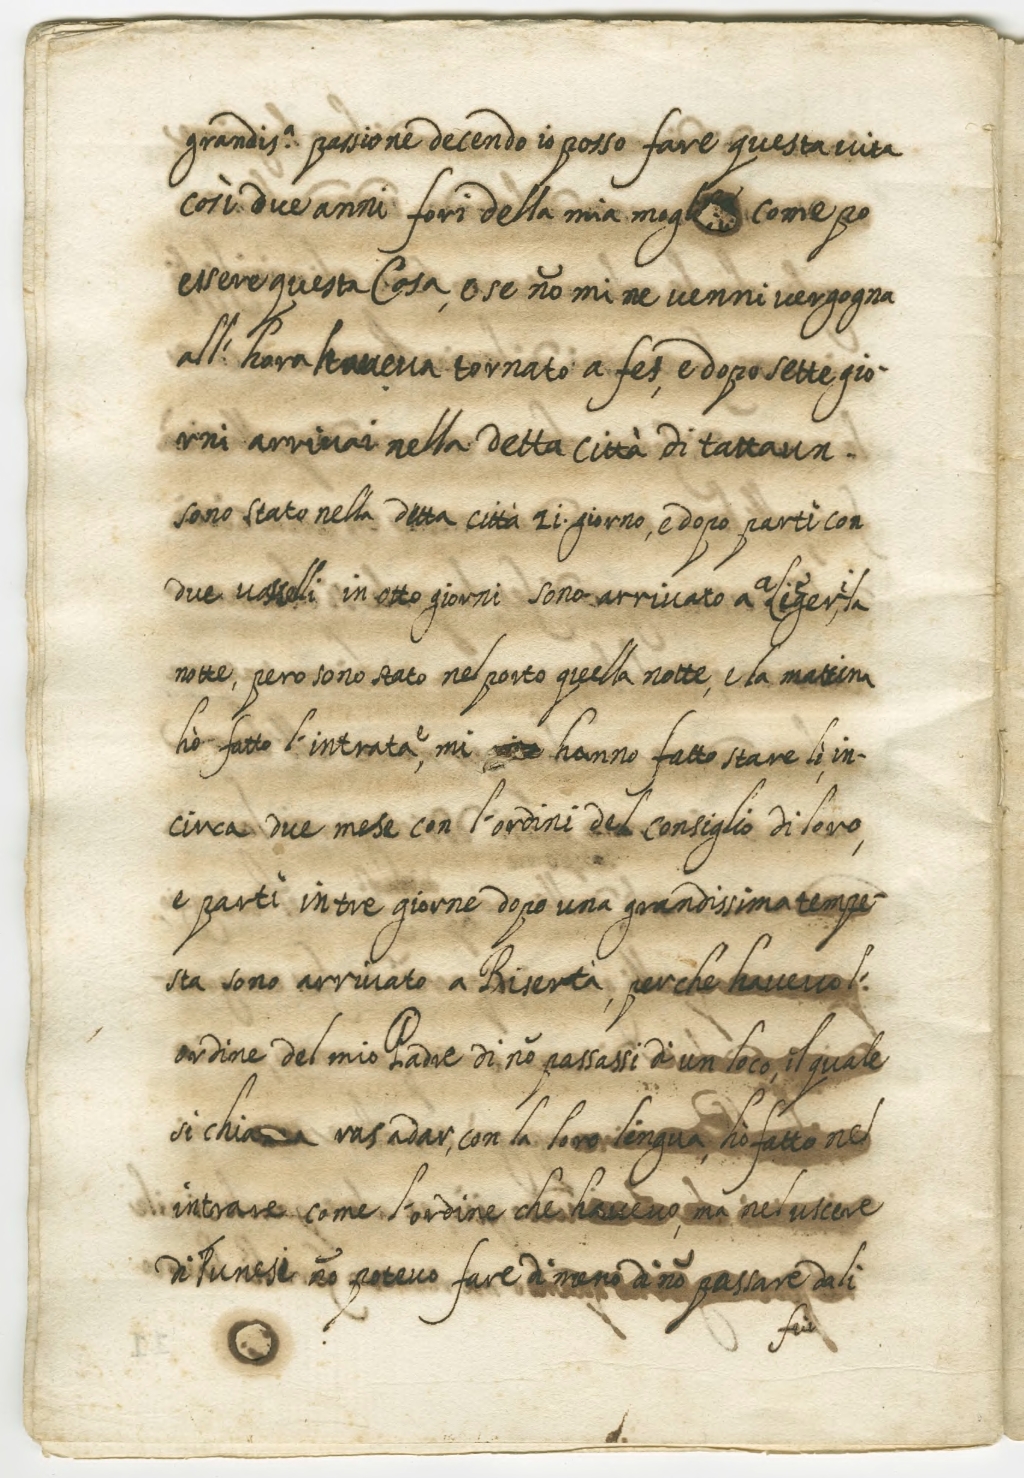 grandis.ª passione decendo io posso fare questa vita
così due anni fori della mia mogl come po
essere questa Cosa, o se nõ mi ne venni vergogna
all' hora haveva tornato a fes, e dopo sette gio-
rni arrivai nella detta città di tattaun.
sono stato nella detta città 21. giorno, e dopo partì con
due vasselli in otto giorni sono arrivato a la
notte, pero sono stato nel porto quella notte, e la mattina
hò fatto l'intrata, e mi hanno fatto stare lì, in-
circa due mese con l'ordini del consiglio di loro,
e partì in tre giorne dopo una grandissima tempe-
sta sono arrivato a Biserta, perche havevo l'
ordine del mio Padre di nõ passassi di un loco, il quale
si chiama ras adar, con la loro lingua, hò fatto nel
intrare come l'ordine che havevo, ma nel uscere
di Tunesi nõ potevo fare di meno di nõ passare da li